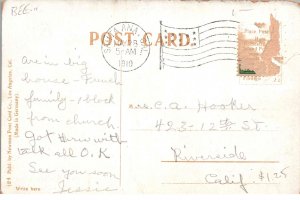 POST CARD.
SANTA ANA
5 AM
1910
Place Post
Are in big
house - French
family - 1 block
from church
Got here with
talk all O.K
See you soon
Jessie
Mrs. C. A. Hooker
493-12th St.
Riverside
Calif.
$1.25
Write here
Publ. by Newman Post Card Co., Los Angeles, Cal.
(Made in Germany)